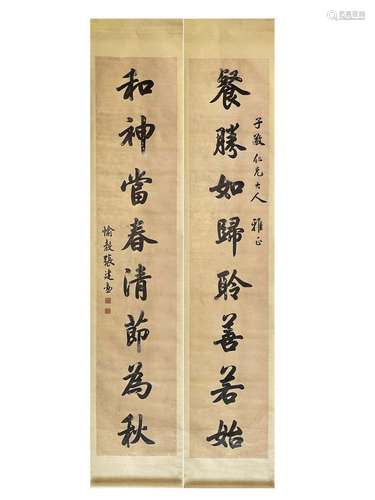 餐勝如歸聆善若始
子敬仁兄大人 雅正
和神當春清節為秋
愉穀張建勳
易拍全球